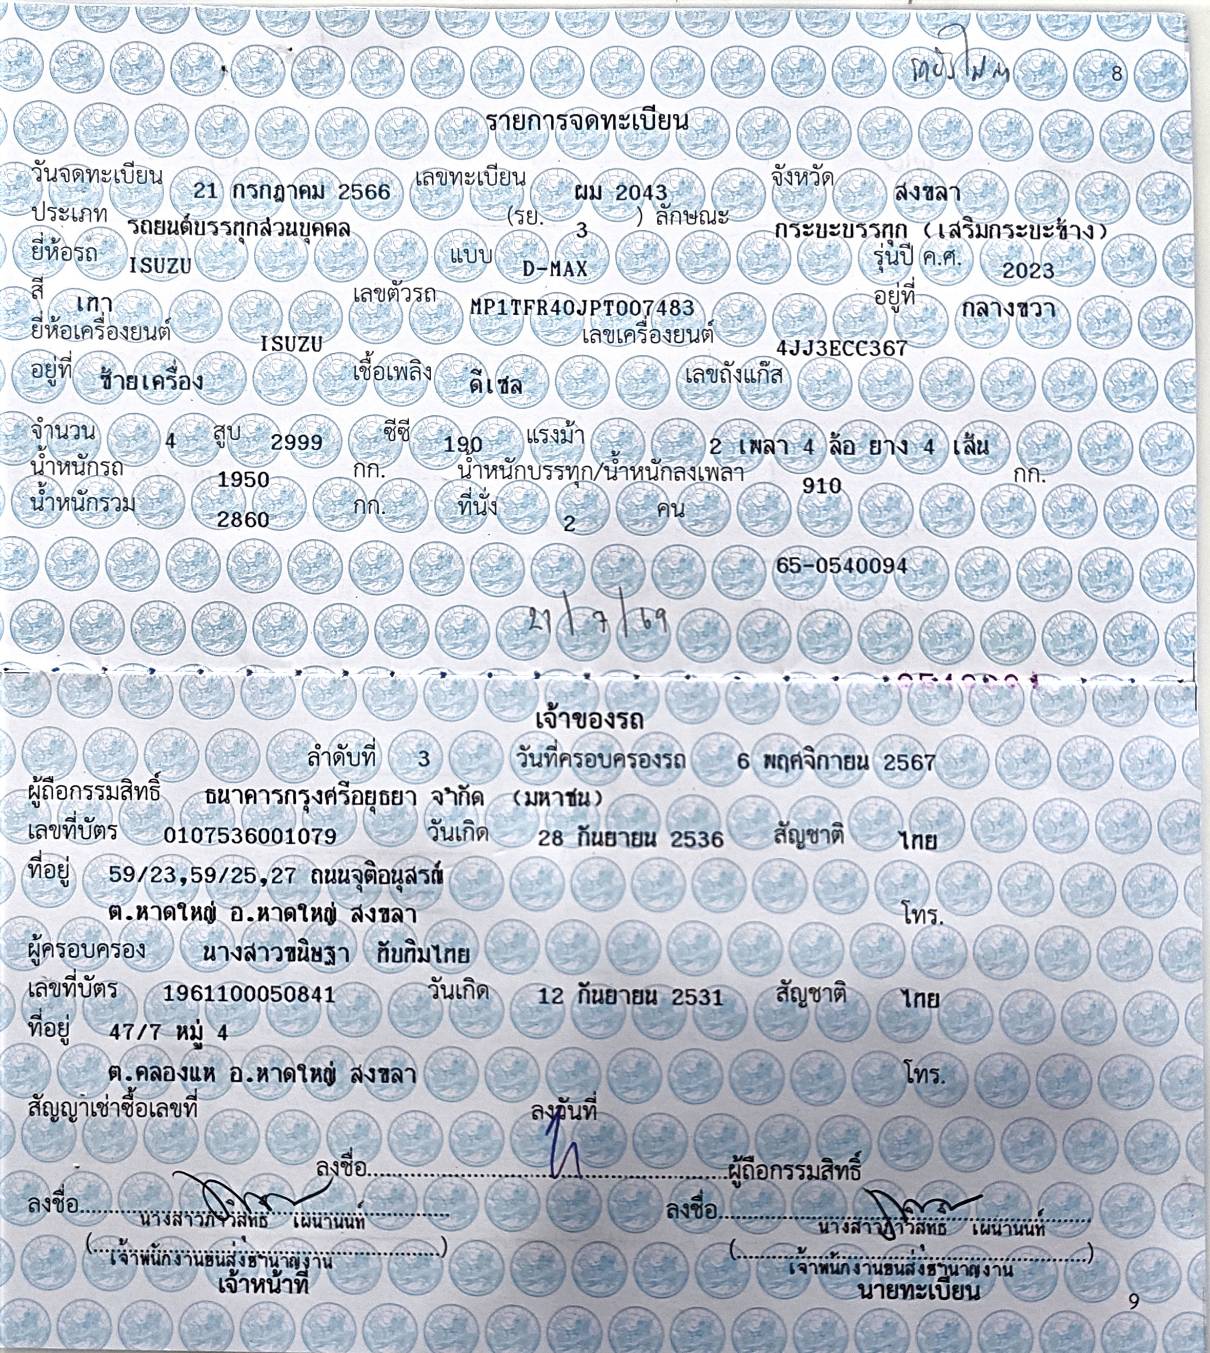 8
รายการจดทะเบียน
วันจดทะเบียน 21 กรกฎาคม 2566 เลขทะเบียน ผม 2043 จังหวัด สงขลา
ประเภท รถยนต์บรรทุกส่วนบุคคล (รย. 3 ) ลักษณะ กระบะบรรทุก (เสริมกระบะข้าง)
ยี่ห้อรถ ISUZU แบบ D-MAX รุ่นปี ค.ศ. 2023
สี เทา เลขตัวรถ MP1TFR40JPT007483 อยู่ที่ กลางขวา
ยี่ห้อเครื่องยนต์ ISUZU เลขเครื่องยนต์ 4JJ3ECC367
อยู่ที่ ซ้ายเครื่อง เชื้อเพลิง ดีเซล เลขถังแก๊ส
จำนวน 4 สูบ 2999 ซีซี 190 แรงม้า 2 เพลา 4 ล้อ ยาง 4 เส้น
น้ำหนักรถ 1950 กก. น้ำหนักบรรทุก/น้ำหนักลงเพลา 910 กก.
น้ำหนักรวม 2860 กก. ที่นั่ง 2 คน
65-0540094
21/7/69
เจ้าของรถ
ลำดับที่ 3 วันที่ครอบครองรถ 6 พฤศจิกายน 2567
ผู้ถือกรรมสิทธิ์ ธนาคารกรุงศรีอยุธยา จำกัด (มหาชน)
เลขที่บัตร 0107536001079 วันเกิด 28 กันยายน 2536 สัญชาติ ไทย
ที่อยู่ 59/23,59/25,27 ถนนจุติอนุสรณ์
ต.หาดใหญ่ อ.หาดใหญ่ สงขลา โทร.
ผู้ครอบครอง นางสาวขนิษฐา ทับทิมไทย
เลขที่บัตร 1961100050841 วันเกิด 12 กันยายน 2531 สัญชาติ ไทย
ที่อยู่ 47/7 หมู่ 4
ต.คลองแห อ.หาดใหญ่ สงขลา โทร.
สัญญาเช่าซื้อเลขที่ ลงวันที่
ลงชื่อ ผู้ถือกรรมสิทธิ์
ลงชื่อ ลงชื่อ
นางสาว เผนานนท์ นางสาว เผนานนท์
(เจ้าพนักงานขนส่งชำนาญงาน) (เจ้าพนักงานขนส่งชำนาญงาน)
เจ้าหน้าที่ นายทะเบียน
9